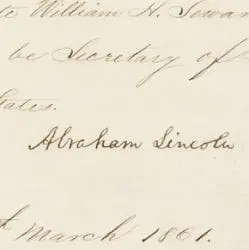 te William H. Sewar
be Secretary of
tates.
Abraham Lincoln
th March 1861.